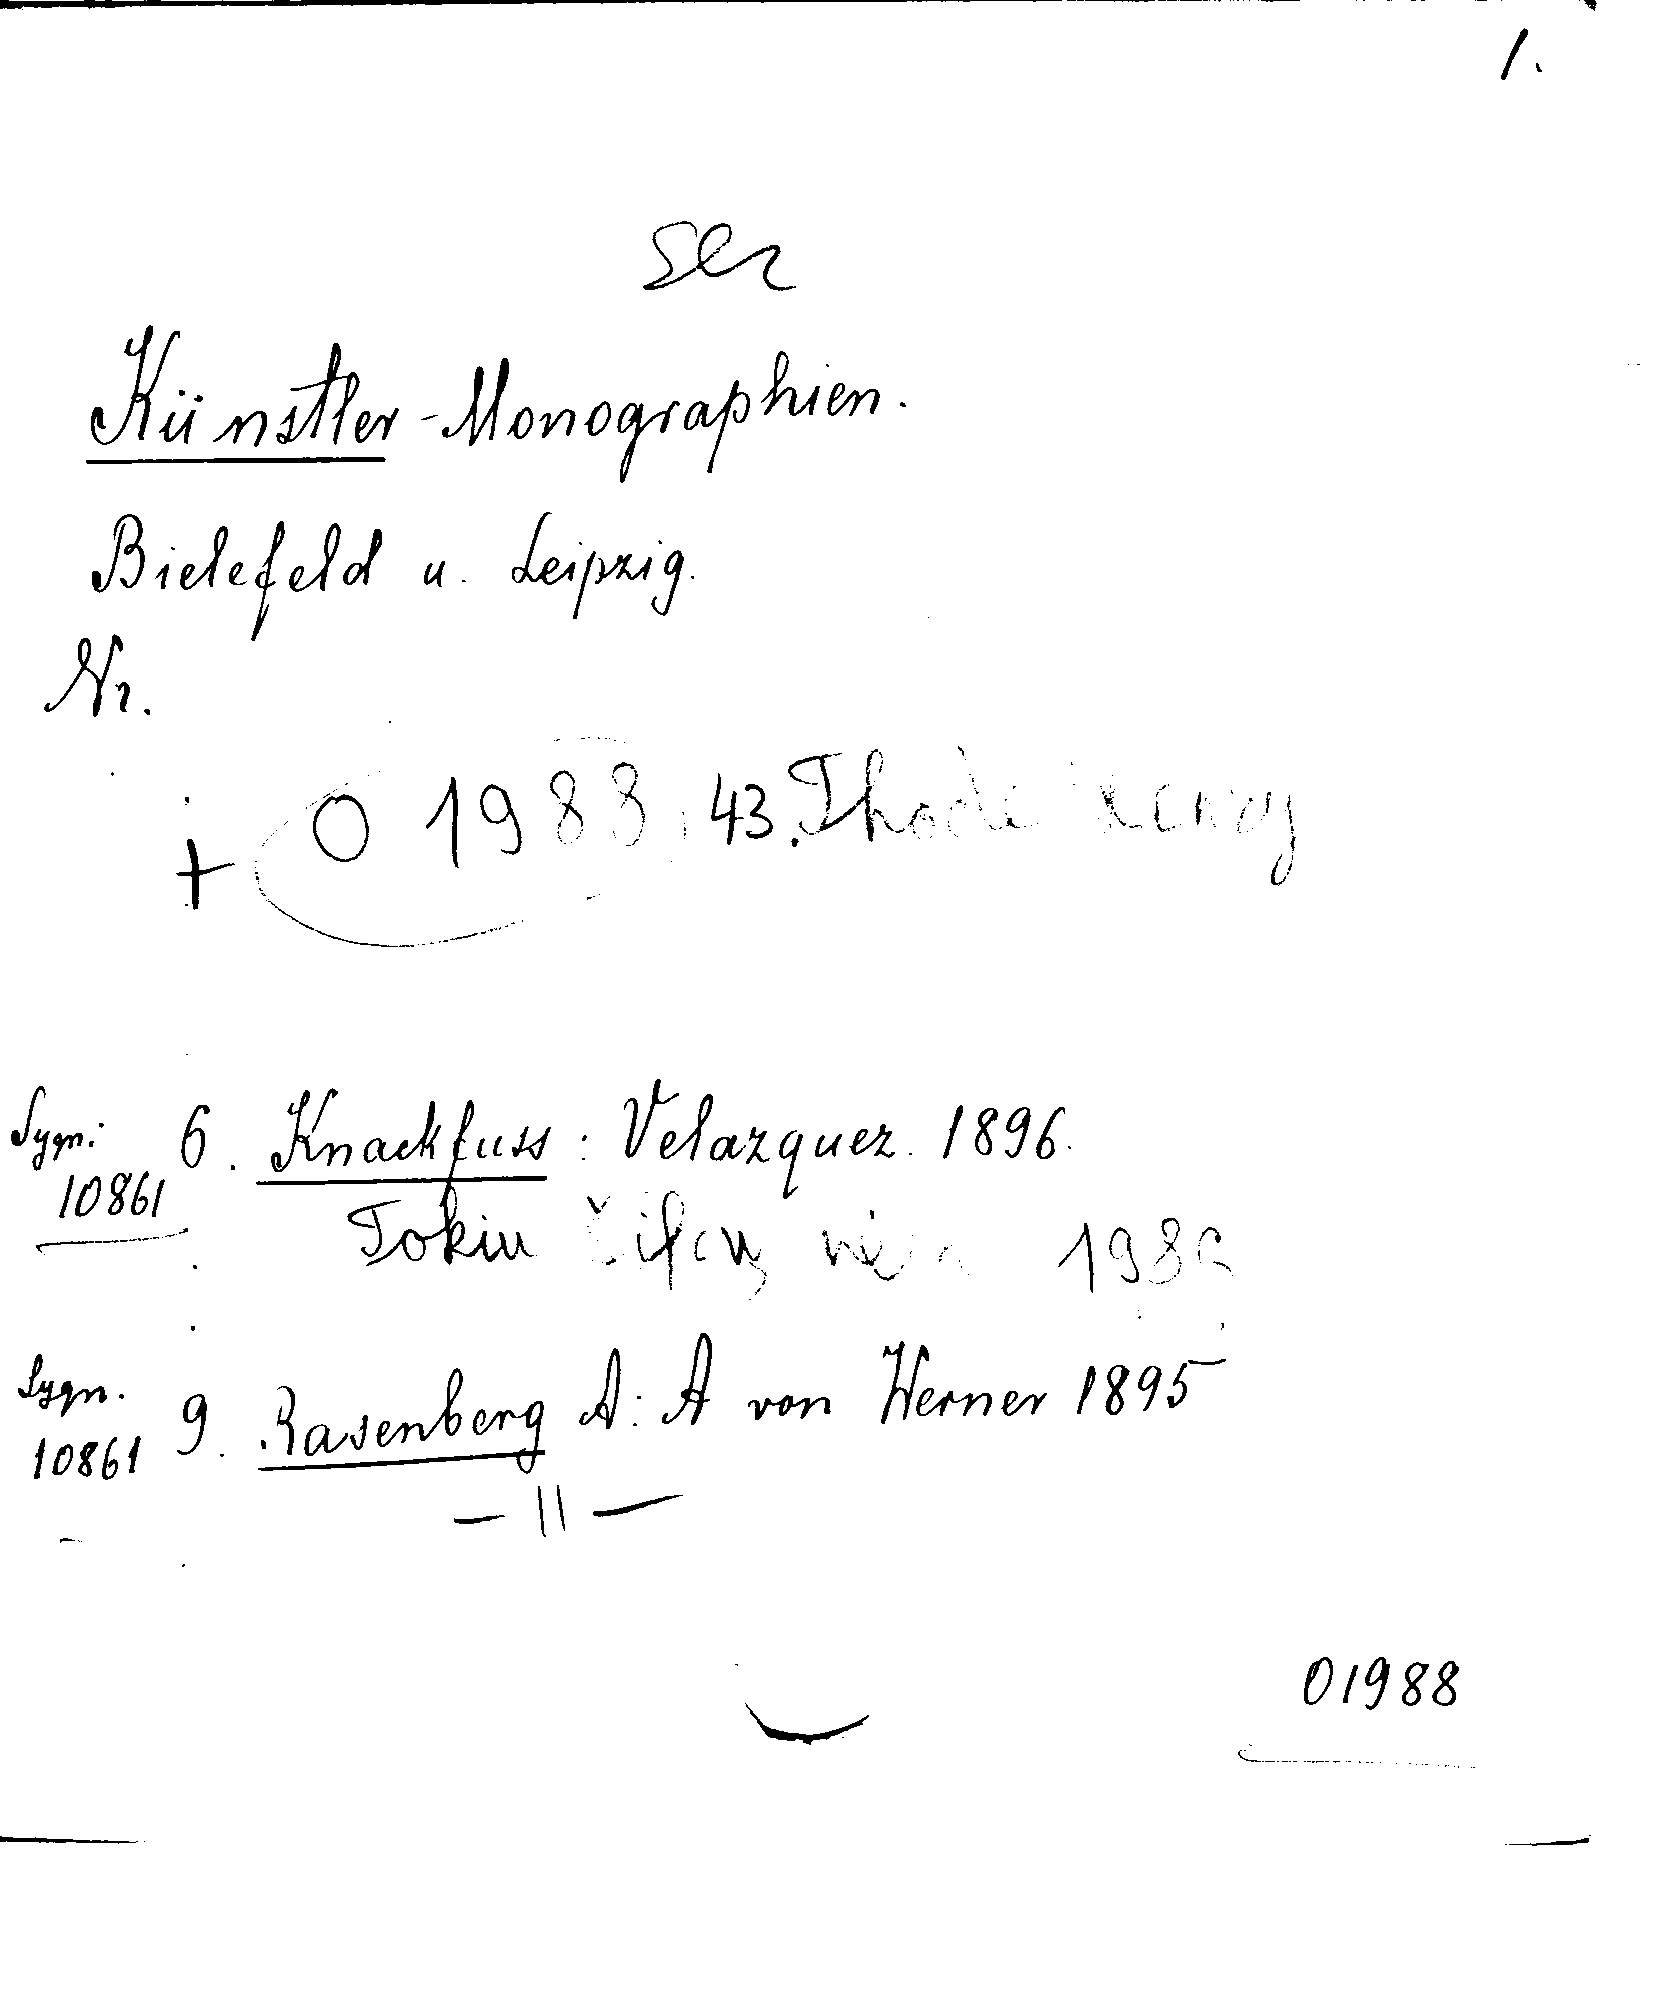 1.
Ser
Künstler-Monographien.
Bielefeld u. Leipzig.
Nr.
+ O 1988, 43. Thode Henry
Sygn: 6. Knackfuss: Velazquez. 1896.
10861
Tokiu šifru nėra 198
Sygn. 9. Rasenberg A: A von Werner 1895
10861
— 11 —
01988